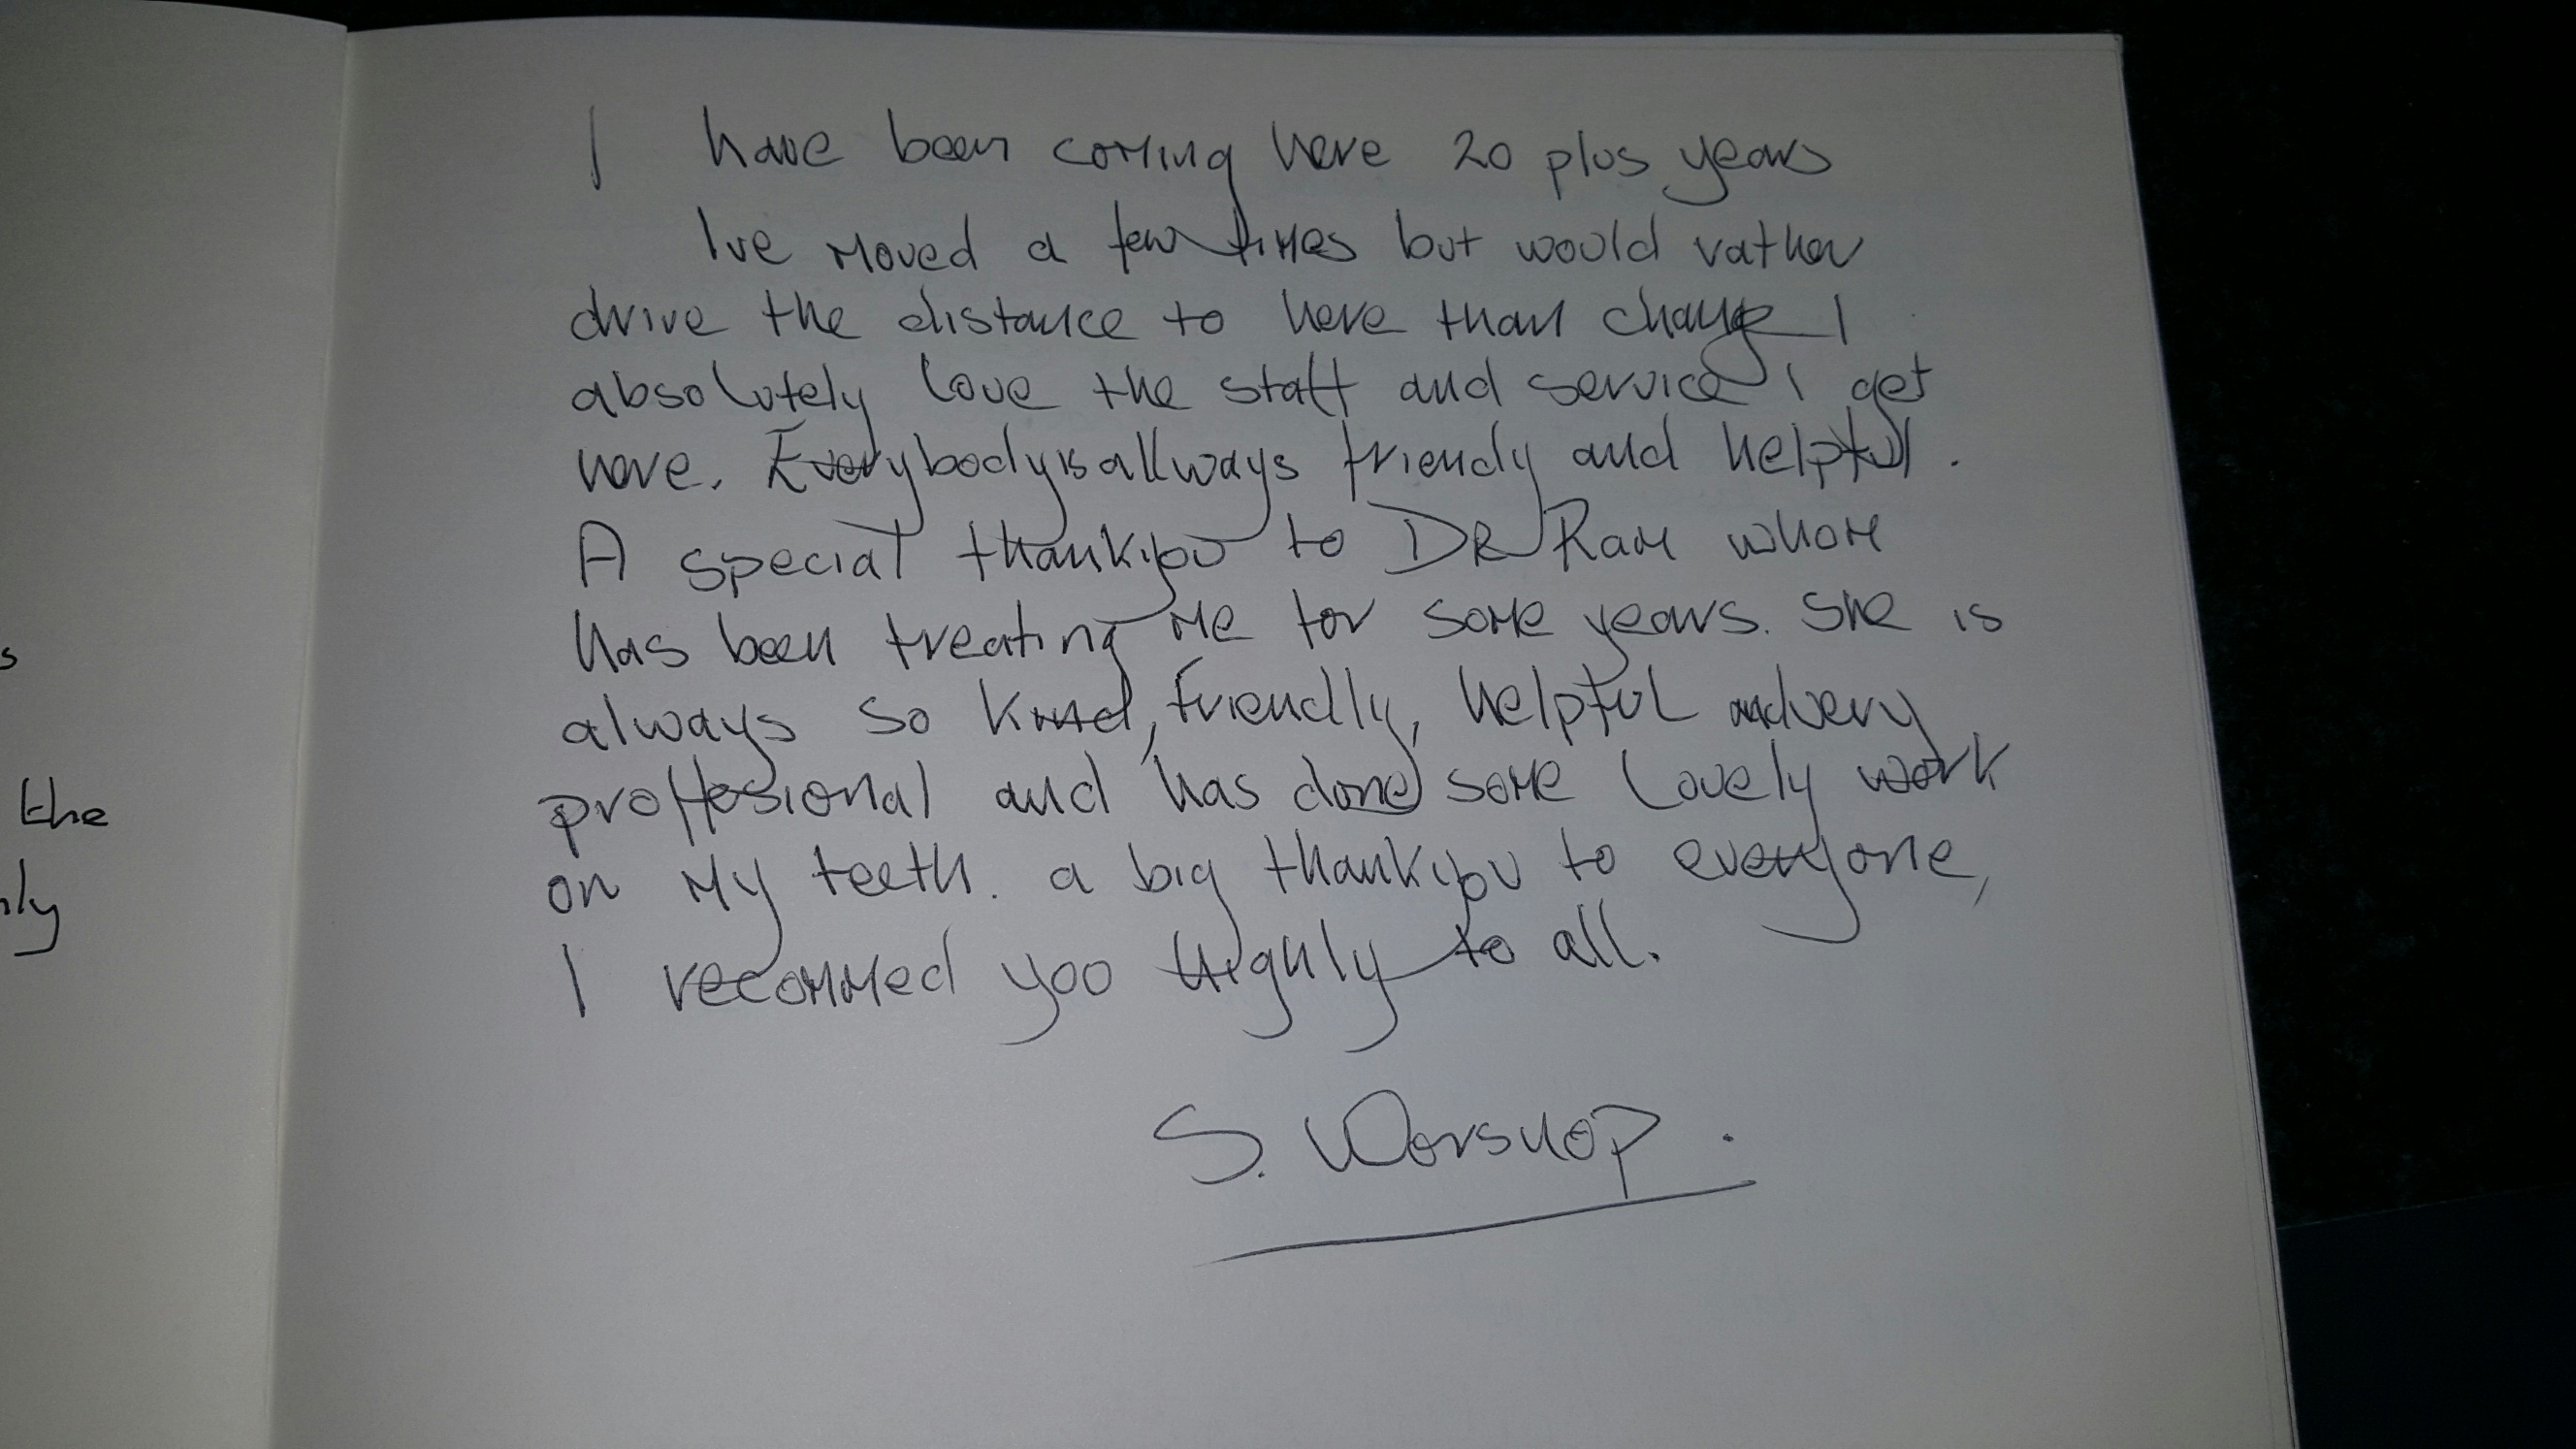 I have been coming here 20 plus years
Ive moved a few times but would rather
drive the distance to here than change I
absolutely love the staff and service I get
here. Everybody is allways friendy and helpful.
A special thankyou to DR Ram whom
has been treating me for some years. She is
always so kind, friendly, helpful and very
proffesional and has done some lovely work
on my teeth. a big thankyou to everyone,
I recommed you highly to all.
S. Worsnop.
s
the
nly